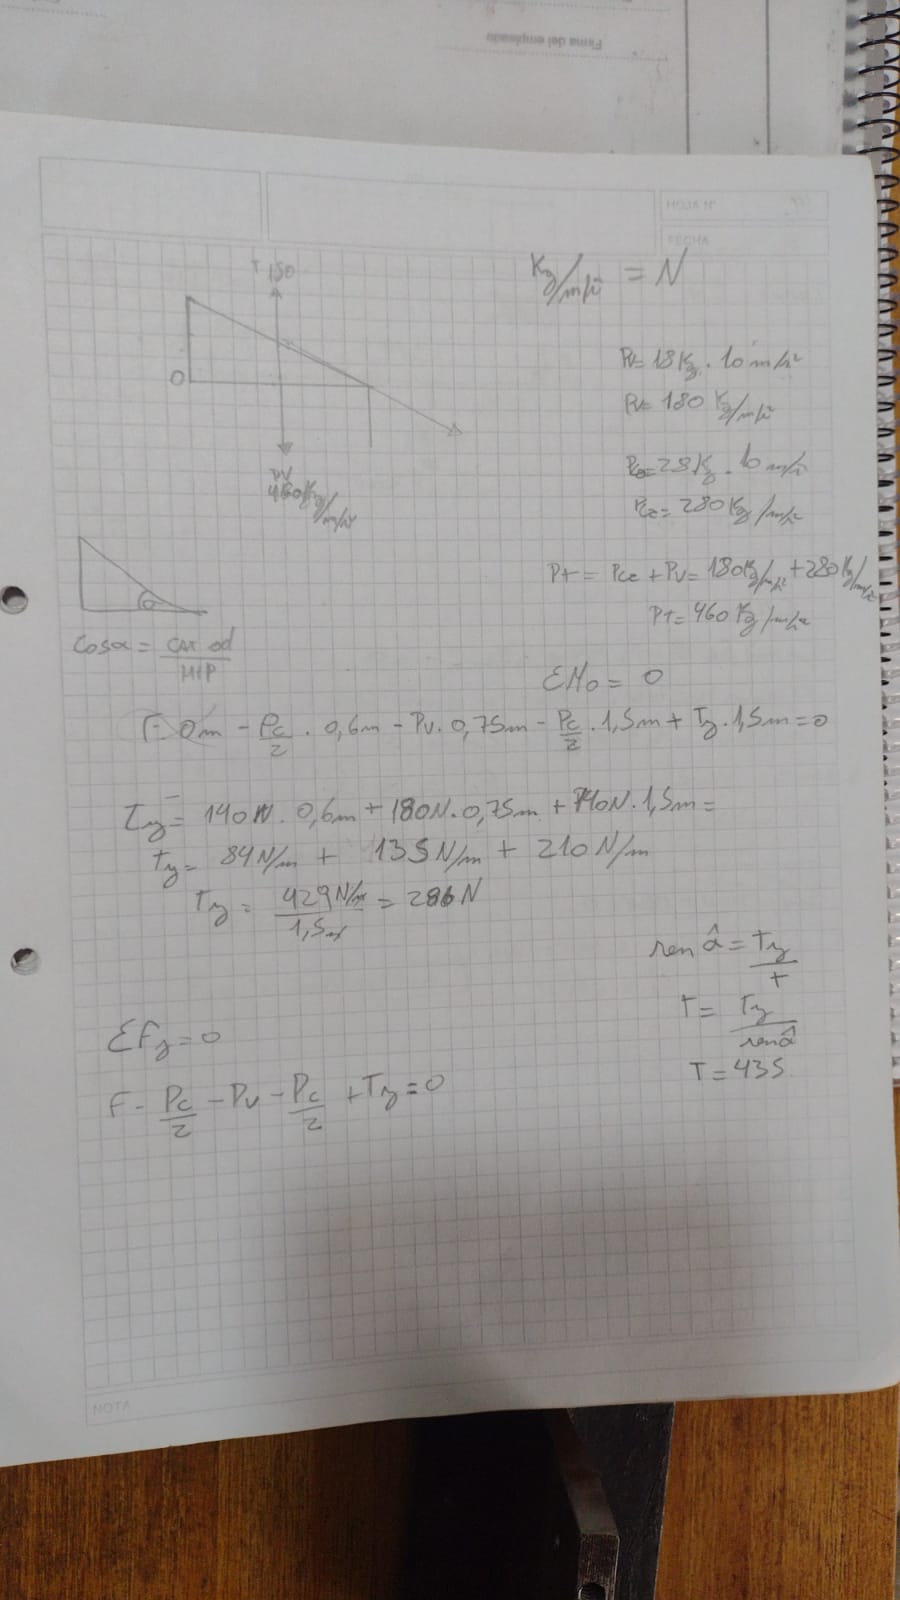 Firma del empleado
HOJA Nº
FECHA
T 150
Kg/m/s² = N
O
Pv= 18 Kg . 10 m/s²
Pv= 180 Kg/m/s²
PV
Pc= 28 Kg . 10 m/s²
Pc= 280 Kg/m/s²
Pt = Pc + Pv = 180 Kg/m/s² + 280 Kg/m/s²
PT= 460 Kg/m/s²
α
Cosα = CAT ad / HIP
ΣMo = 0
F. 0m - Pc/2 . 0,6m - Pv. 0,75m - Pc/2 . 1,5m + Ty . 1,5m = 0
Ty = 140N. 0,6m + 180N. 0,75m + 140N. 1,5m =
Ty = 84 N/m + 135 N/m + 210 N/m
Ty = 429 N/m / 1,5m = 286 N
sen â = Ty / T
T = Ty / sen â
T = 435
ΣFy = 0
F - Pc/2 - Pv - Pc/2 + Ty = 0
NOTA